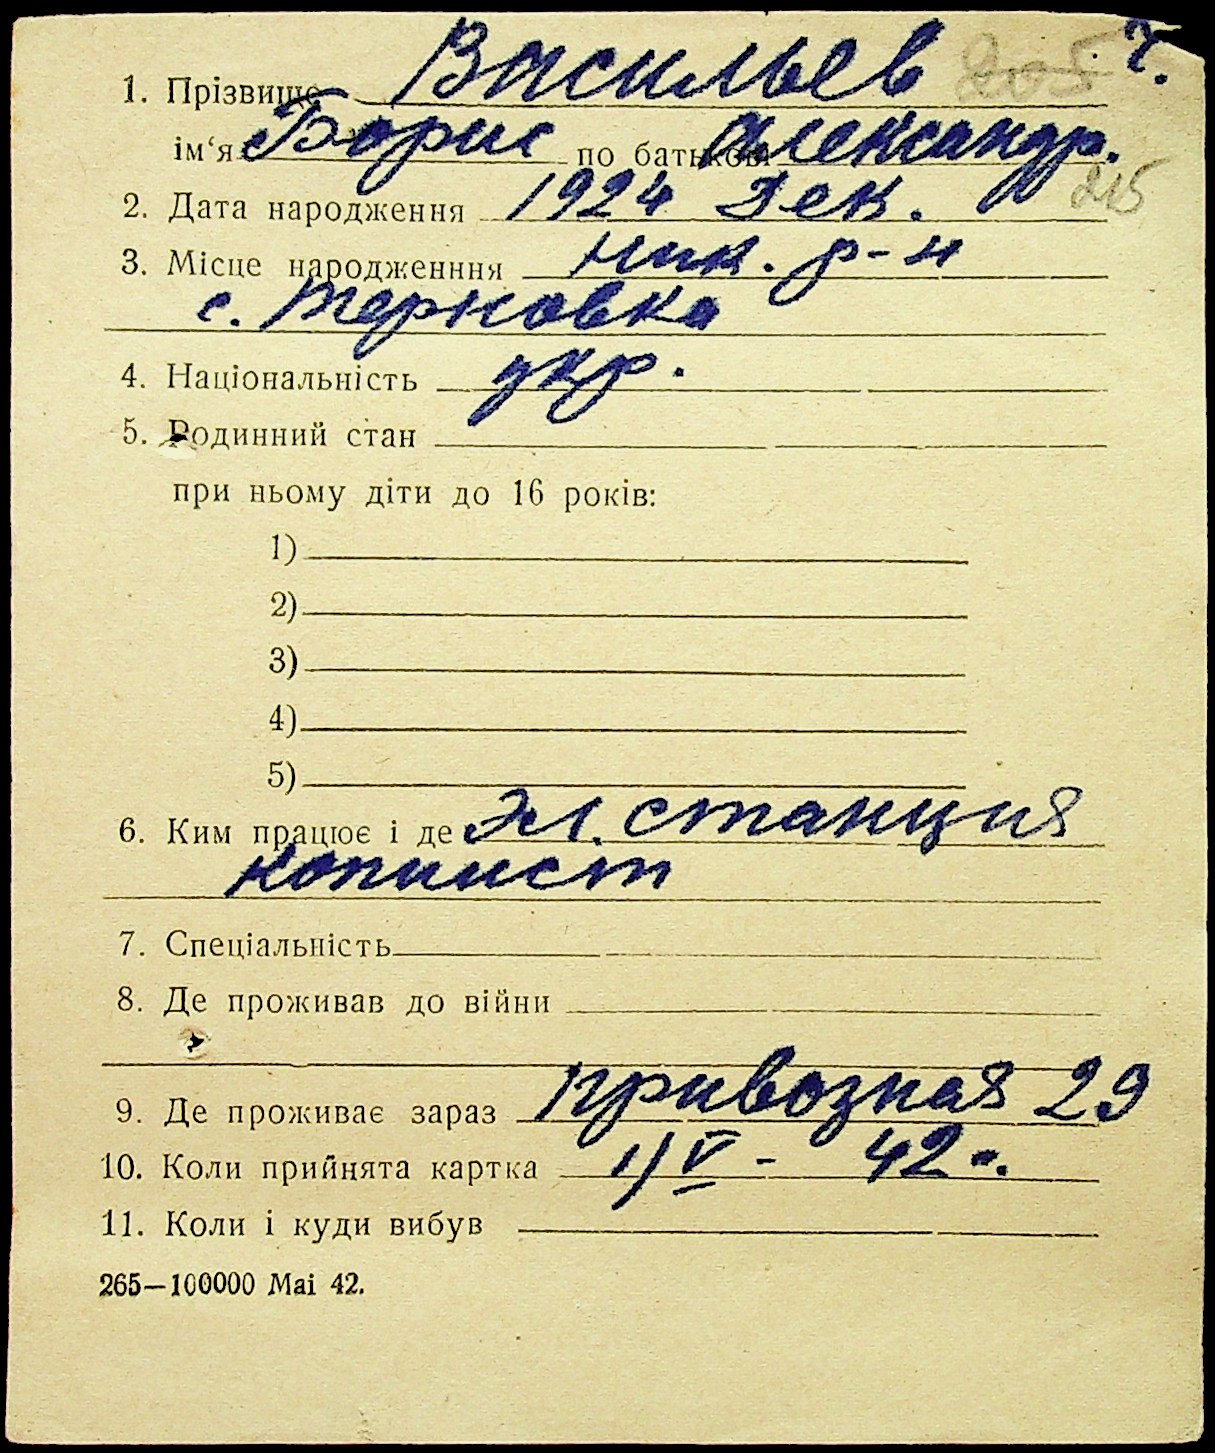 1. Прізвище Васильев 205 Г.
ім‘я Борис по батькові Александр.
215
2. Дата народження 1924 дек.
3. Місце народженння Ник. р-н
с. Терновка
4. Національність укр.
5. Родинний стан
при ньому діти до 16 років:
1)
2)
3)
4)
5)
6. Ким працює і де Эл. станция
копиист
7. Спеціальність
8. Де проживав до війни
9. Де проживає зараз Привозная 29
10. Коли прийнята картка 1/V - 42 г.
11. Коли і куди вибув
265—100000 Mai 42.